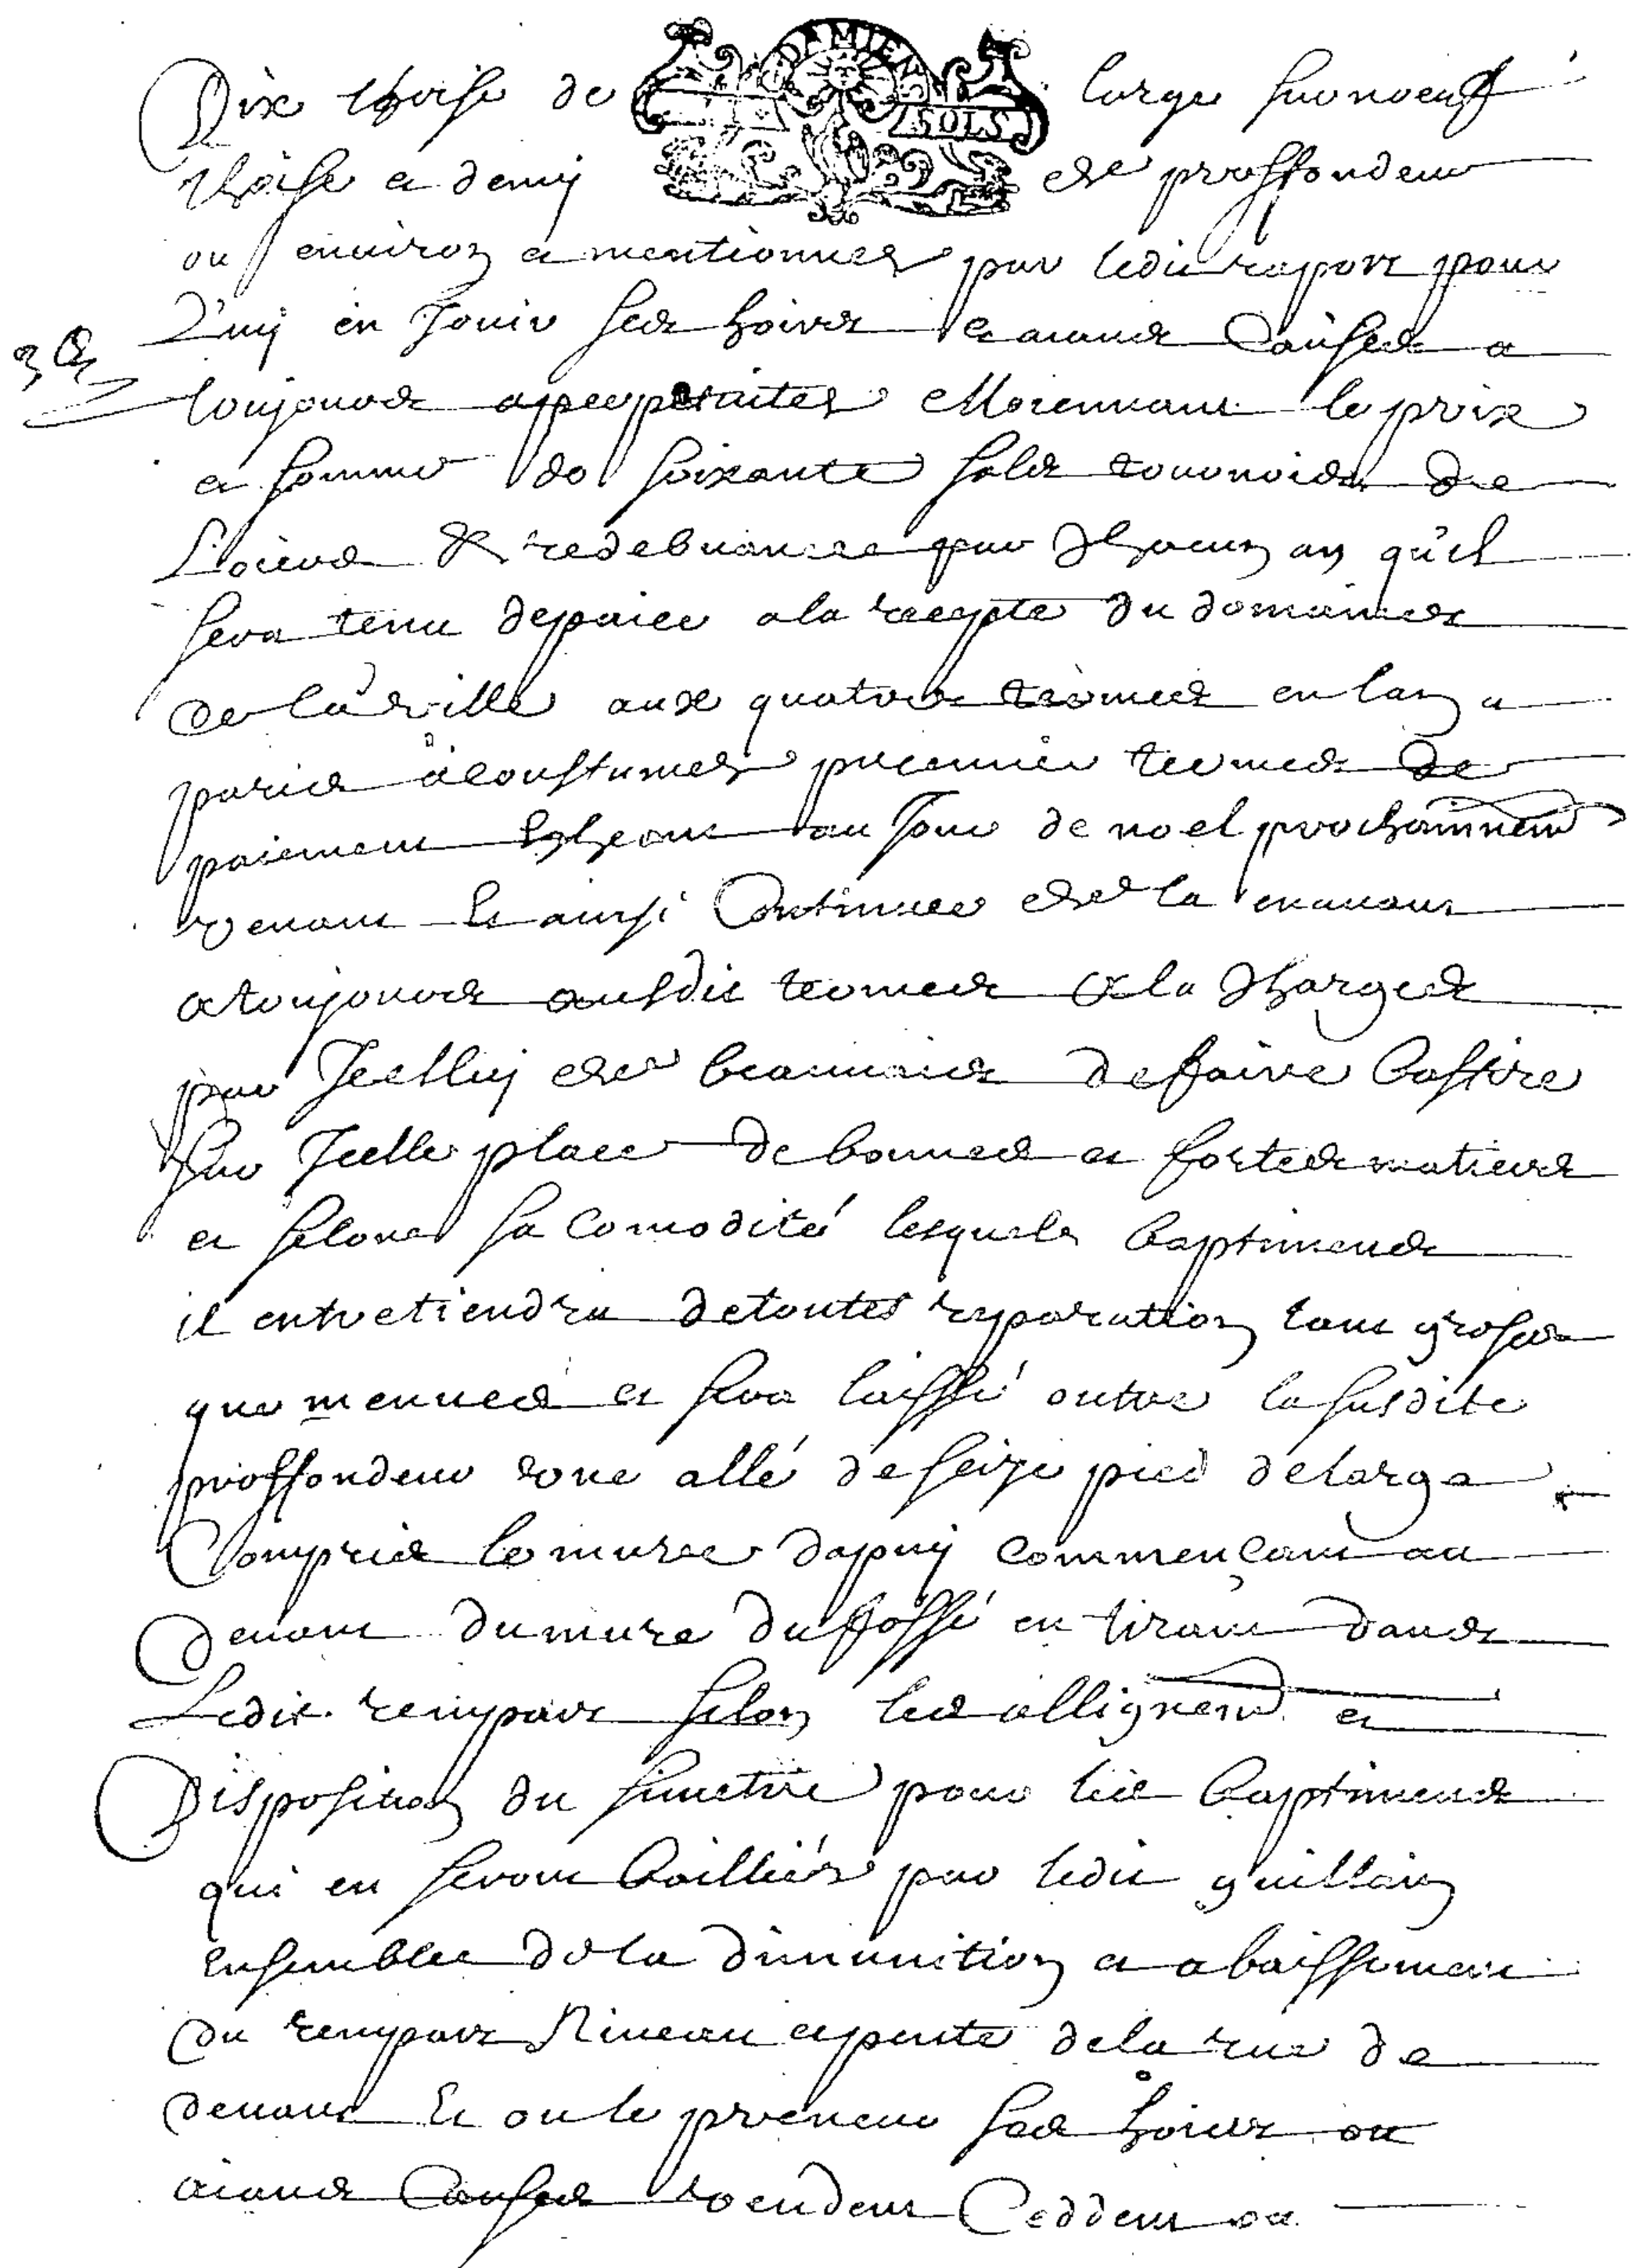 Dix thoise de large sur noeuf
thoise et demy de proffondeur
ou environ et mentionnez par ledit raport pour
d'iuy en Jouir ses hoirs et aians causes a
toujours a perpetuitez Moiennant le prix
et somme de soixante solz tournois de
Loiers & redebvances par Chacun an qu'il
sera tenu de paier a la recepte du domaines
de la ville aux quatres termes en lan a
paris acoustumez premier termes de
paiement Escheant au Jour de noel prochainnemt
venant Et ainsi Continuer de la enavant
a toujours ausdit termes & a la Charges
par Jcelluy de beaumais de faire bastire
sur Jcelle place de bonnes et fortes matieres
et selons sa Comodité lesquels baptimens
il entretiendra de toutes reparation tant groses
que menues et sera laissé outre la susdite
proffondeur une allé de seize pied de large
Compris le mure dapuy Commencant au
devant du mure du fossé en tirant dans
Ledit rempart selon les allignemt et
Disposition du simetrie pour les baptimens
qui en seront bailliés par ledit guillain
ensembles de la diminution et abaissement
du rempart Niveau et pente de la rue de
devant Et ou le preneur ses hoirs ou
aians Causes vendent Ceddent ou
3 &
DAMIENS
SOLS